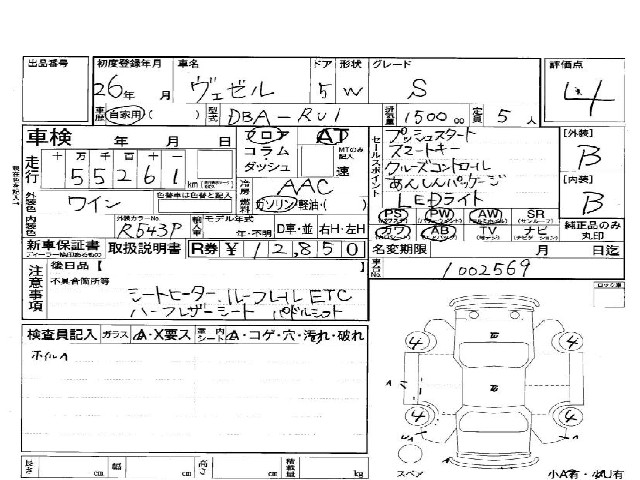 出品番号 初度登録年月 車名 ドア 形状 グレード 評価点
26年 月 ヴェゼル 5 W S 4
車歴 自家用 ( ) 型式 DBA-RU1 排気量 1500 cc 定員 5 人
車検 年 月 日 フロア AT セールスポイント プッシュスタート [外装]
走行 十 万 千 百 十 一 コラム MTのみ記入 スマートキー B
5 5 2 6 1 km ダッシュ 速 クルーズコントロール [内装]
外装色 ワイン 色替車は色替と記入 冷房 AAC あんしんパッケージ B
内装色 燃料 ガソリン・軽油・( ) LEDライト
外装カラーNo. R543P 輸入車 モデル年式 PS PW AW SR 純正品のみ丸印
年・不明 D車・並 右H・左H カワ AB TV ナビ
新車保証書 取扱説明書 R券 ¥ 12,850 名変期限 月 日迄
注意事項 後日品【 】 車台No. 1002569
不具合箇所等
シートヒーター ルーフレール ETC
ハーフレザーシート パドルシフト
検査員記入 ガラス A・X要ス 室内シート A・コゲ・穴・汚れ・破れ
ホイルA
4 4
A A
4 4
長さ cm 幅 cm 高さ cm 積載量 kg
スペア 小A有・小U有